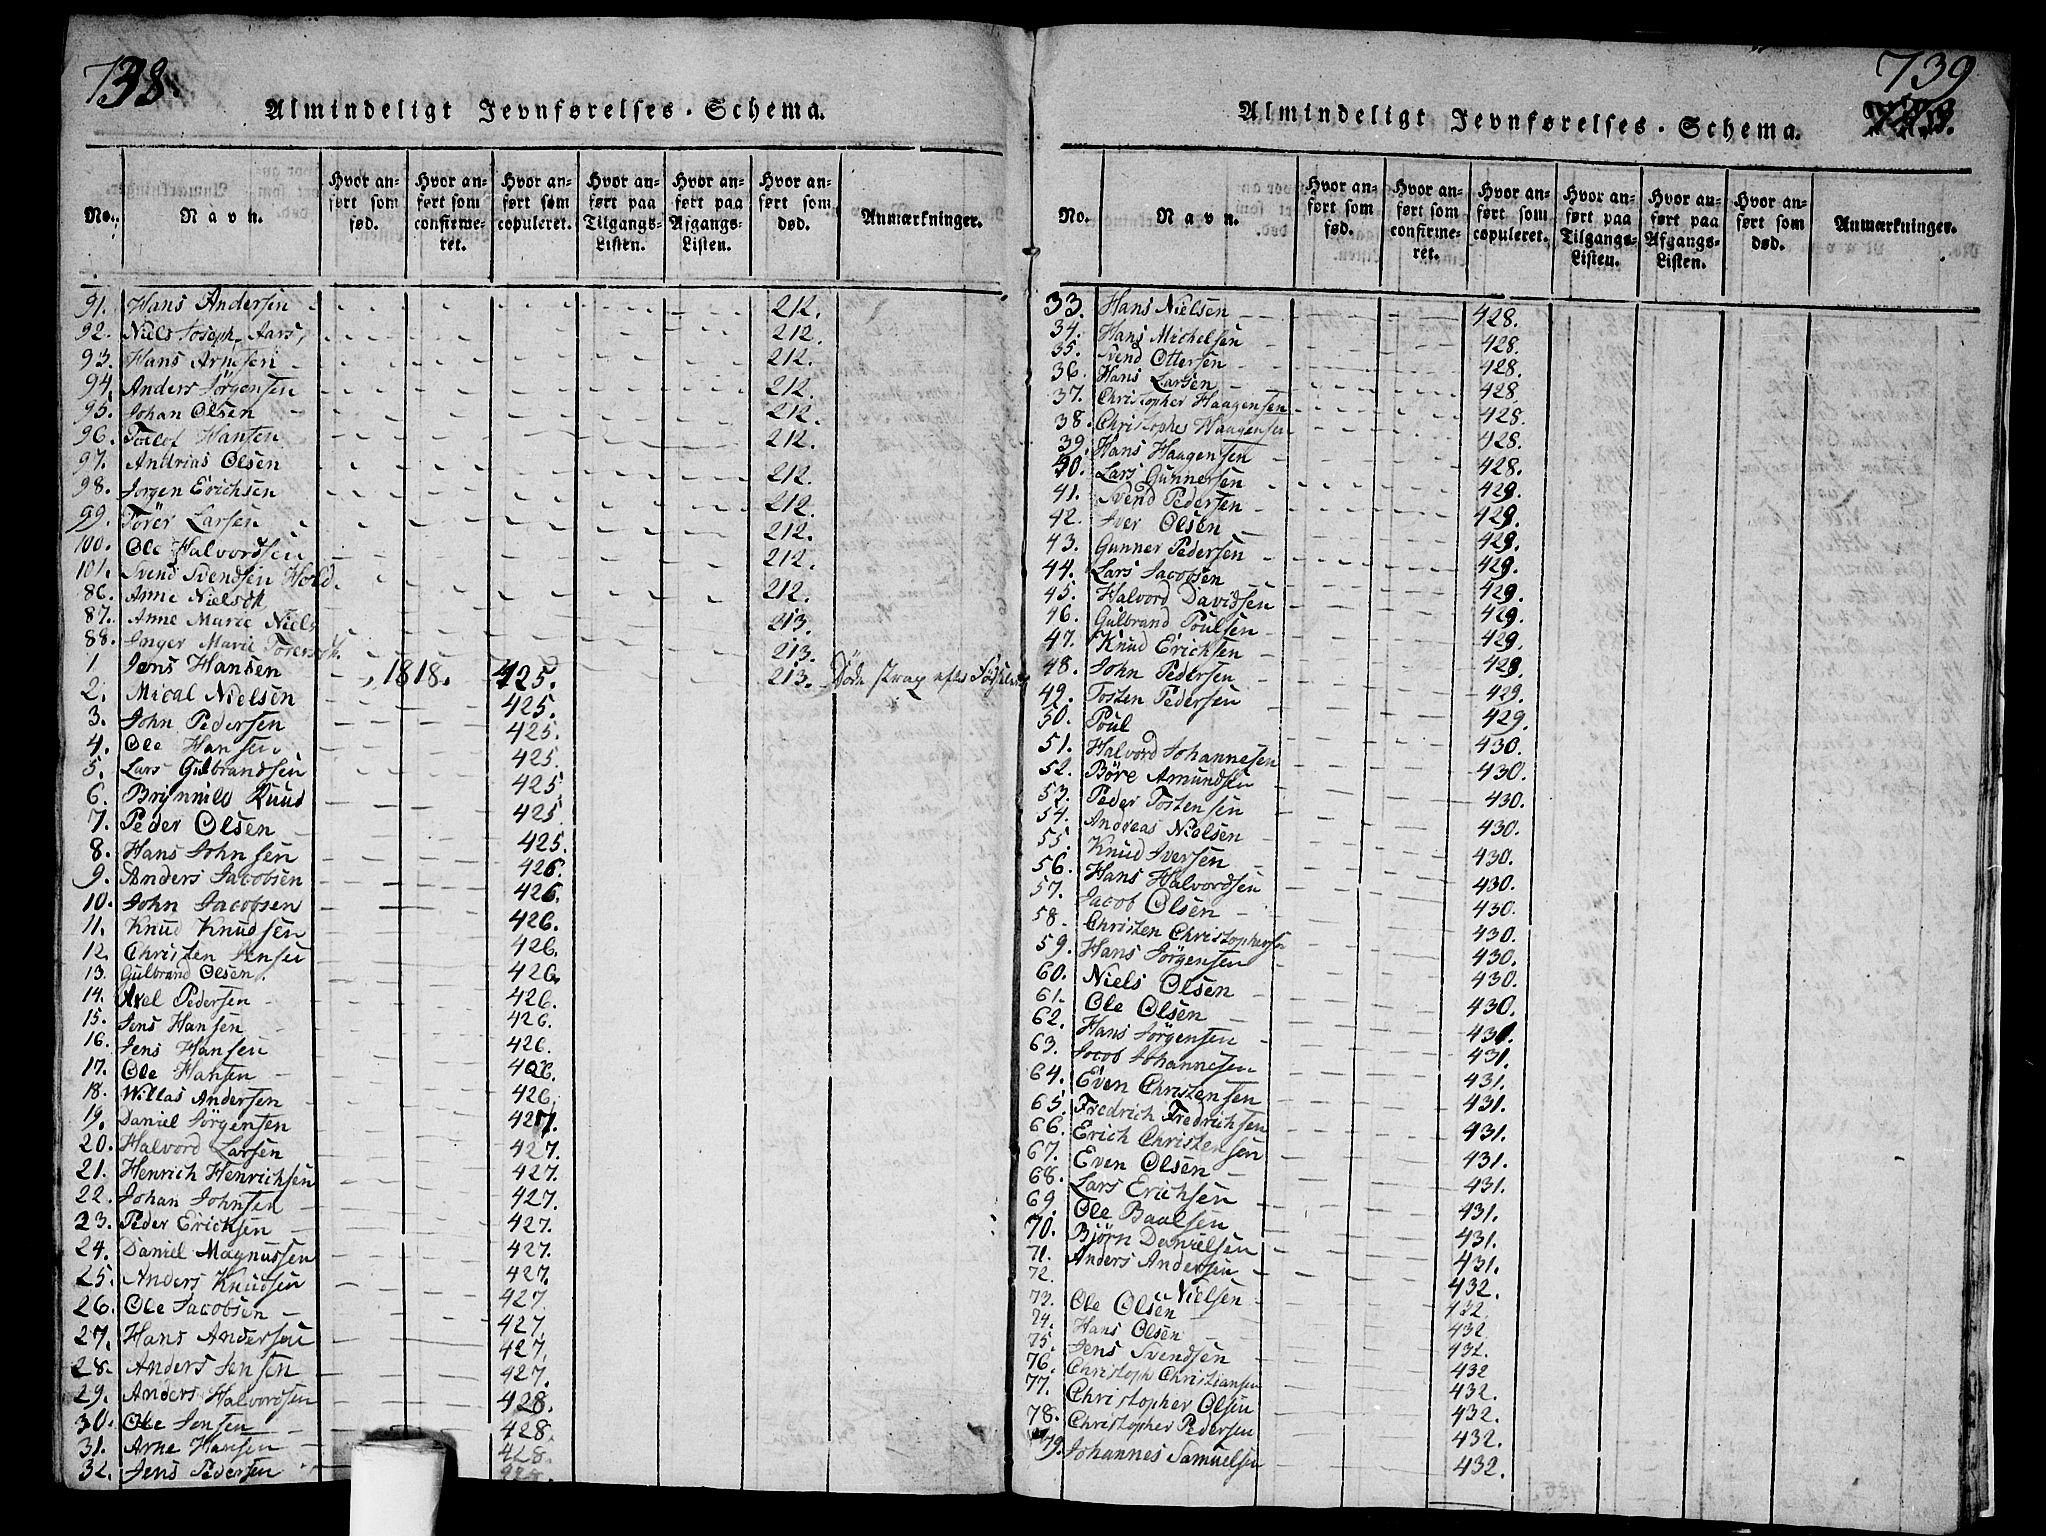 738.
Almindeligt Jevnførelses-Schema.
No. Navn. Hvor anført som fød. Hvor anført som confirmeret. Hvor anført som copuleret. Hvor anført paa Tilgangs-Listen. Hvor anført paa Afgangs-Listen. Hvor anført som død. Anmærkninger.
91. Hans Andersen 212.
92. Niels Joseph Aars, 212.
93. Hans Arnesen 212.
94. Anders Jörgensen 212.
95. Johan Olsen 212.
96. Hansen 212.
97. Andrias Olsen 212.
98. Jorgen Erichsen 212.
99. Larsen 212.
100. Ole Halvordsen 212.
101. Svend Svendsen 212.
86. Anne 213.
87. Anne Marie Niels 213.
88. Inger Marie 213. Döde strax efter
1. Jens Hansen 1818. 425.
2. Mical Nielsen 425.
3. John Pedersen 425.
4. Ole Hansen 425.
5. Lars Gulbrandsen 425.
6. Brynnild Knud 425.
7. Peder Olsen 425.
8. Hans Johnsen 426.
9. Anders Jacobsen 426.
10. John Jacobsen 426.
11. Knud Knudsen 426.
12. Christen Jensen 426.
13. Gulbrand Olsen 426.
14. Axel Pedersen 426.
15. Jens Hansen 426.
16. Jens Hansen 426.
17. Ole Hansen 426.
18. Willas Andersen 427.
19. Daniel Jörgensen 427.
20. Halvord Larsen 427.
21. Henrich Henrichsen 427.
22. Johan Johnsen 427.
23. Peder Ericksen 427.
24. Daniel Magnussen 427.
25. Anders Knudsen 427.
26. Ole Jacobsen 427.
27. Hans Andersen 427.
28. Anders Jensen 427.
29. Anders Halvordsen 428.
30. Ole Jensen 428.
31. Arne Hansen 428.
32. Jens Pedersen
739
Almindeligt Jevnførelses-Schema.
No. Navn. Hvor anført som fød. Hvor anført som confirmeret. Hvor anført som copuleret. Hvor anført paa Tilgangs-Listen. Hvor anført paa Afgangs-Listen. Hvor anført som død. Anmærkninger.
33. Hans Nielsen 428.
34. Hans Michelsen 428.
35. Svend Ottersen 428.
36. Hans Larsen 428.
37. Christopher Haagensen 428.
38. Christopher Haagensen 428.
39. Hans Haagensen 428.
40. Lars Gunnersen 429.
41. Svend Pedersen 429.
42. Iver Olsen 429.
43. Gunner Pedersen 429.
44. Lars Jacobsen 429.
45. Halvord Davidsen 429.
46. Gulbrand Poulsen 429.
47. Knud Erichsen 429.
48. John Pedersen 429.
49. Tosten Pedersen 429.
50. Poul 430.
51. Halvord Johannesen 430.
52. Böre Amundsen 430.
53. Peder Tostensen 430.
54. Andreas Nielsen 430.
55. Knud Iversen 430.
56. Hans Halvordsen 430.
57. Jacob Olsen 430.
58. Christen Christophersen 430.
59. Hans Jörgensen 430.
60. Niels Olsen 430.
61. Ole Olsen 431.
62. Hans Jörgensen 431.
63. Jocob Johannesen 431.
64. Even Christensen 431.
65. Fredrich Fredrichsen 431.
66. Erich Christensen 431.
67. Even Olsen 431.
68. Lars Erichsen 431.
69. Ole Baalsen 431.
70. Björn Danielsen 431.
71. Anders Andersen 432.
72. Nielsen 432.
73. Ole Olsen 432
74. Hans Olsen 432.
75. Jens Svendsen 432
76. Christoph Christiansen 432.
77. Christopher Olsen 432.
78. Christopher Pedersen 432.
79. Johannes Samuelsen 432.